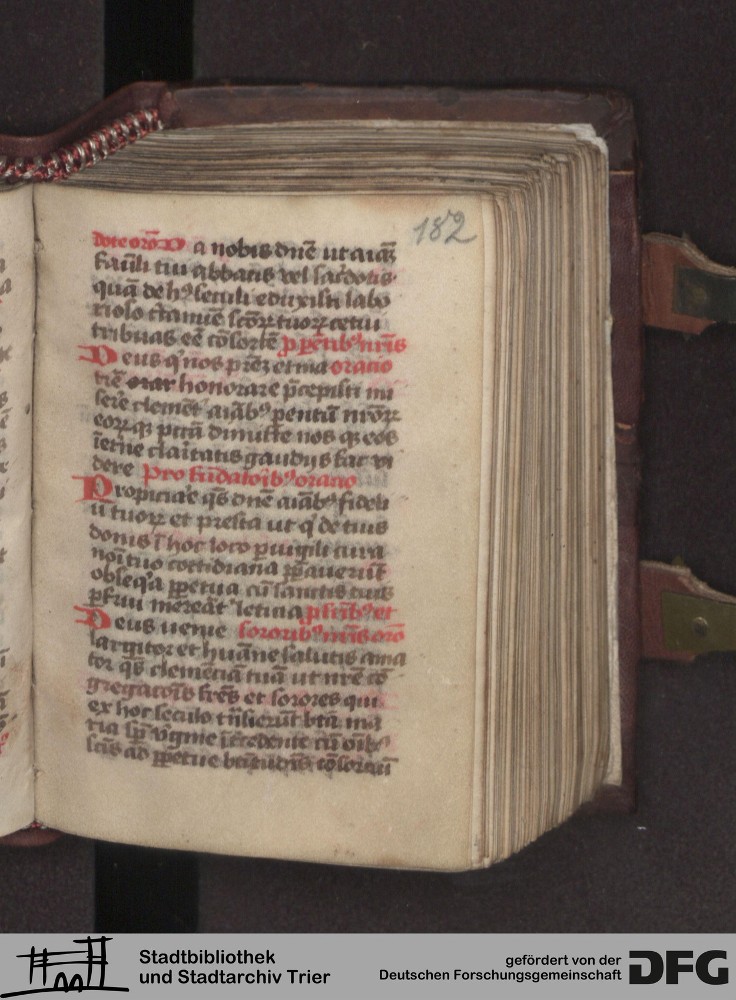 182
dote orō D a nobis dn̄e ut aīaꝫ
fam̄li tui abbatis vel sac̄dotis
quā de hꝰ seculi eduxisti labo
rioso c̄tamine sc̄oꝝ tuoꝝ cetui
tribuas eē cōsortē p pentibꝰ nr̄is
Deus q' nos pr̄eꝫ et ma oracio
trē honorare p̄cepisti mi
sere clement̄ aīabꝰ pentū nr̄oꝝ
eoꝝqꝫ pctā dimitte nos qꝫ eos
ī et̄ne claritatis gaudijs fac vi
dere Pro fūdatoībꝰ oracio
Propiciare qs̄ dn̄e aīabꝰ fideli
ū tuoꝝ et presta ut q' de tuis
donis ī hoc loco puigili cura
noī tuo cottidiana ꝑpaueruͭt
obseq'a ꝑpetua cū sanctis tuis
ꝑfrui mereāt' letitia p fr̄ibꝰ et
Deus uenie sororibꝰ nr̄is orō
largitor et huāne salutis ama
tor qs̄ clemēciā tuā ut nr̄e cō
gregacōis fr̄es et sorores qui
ex hoc seculo trāsierūt btā ma
ria sp̄ v̓gine īt̓cedente cū oībꝰ
scīs ad ꝑpetue btītudīs cōsorciū
Stadtbibliothek
und Stadtarchiv Trier
gefördert von der
Deutschen Forschungsgemeinschaft
DFG